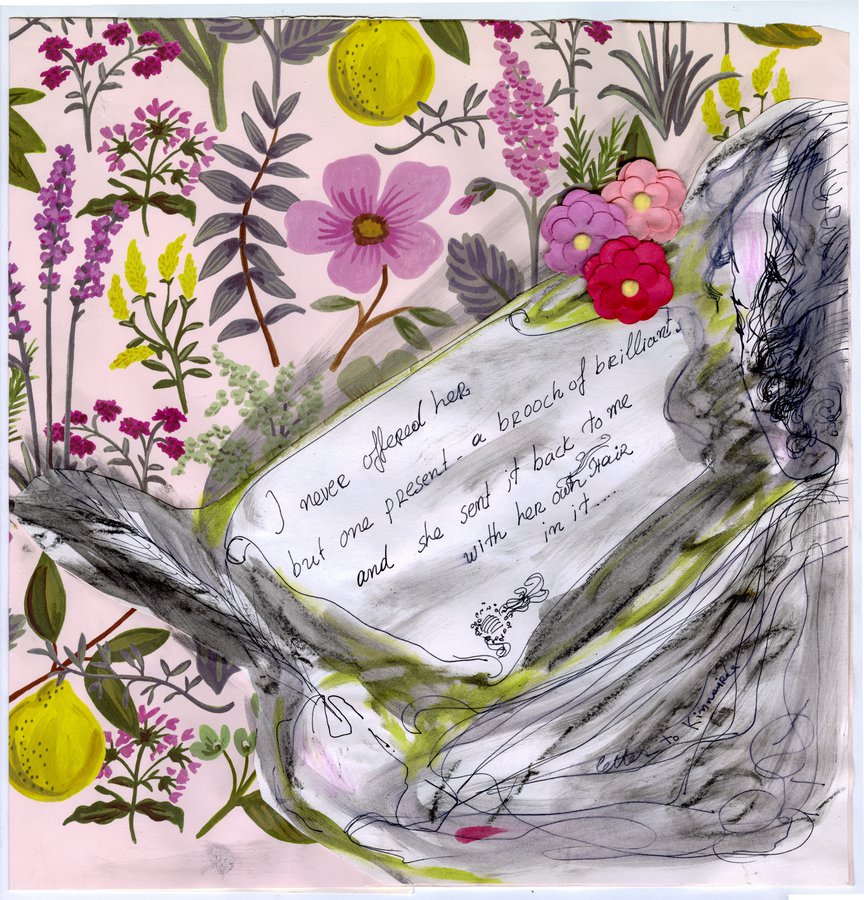 I never offered her
but one present - a brooch of brilliant.
and she sent it back to me
with her own Hair
in it....
Letter to Kinnaird